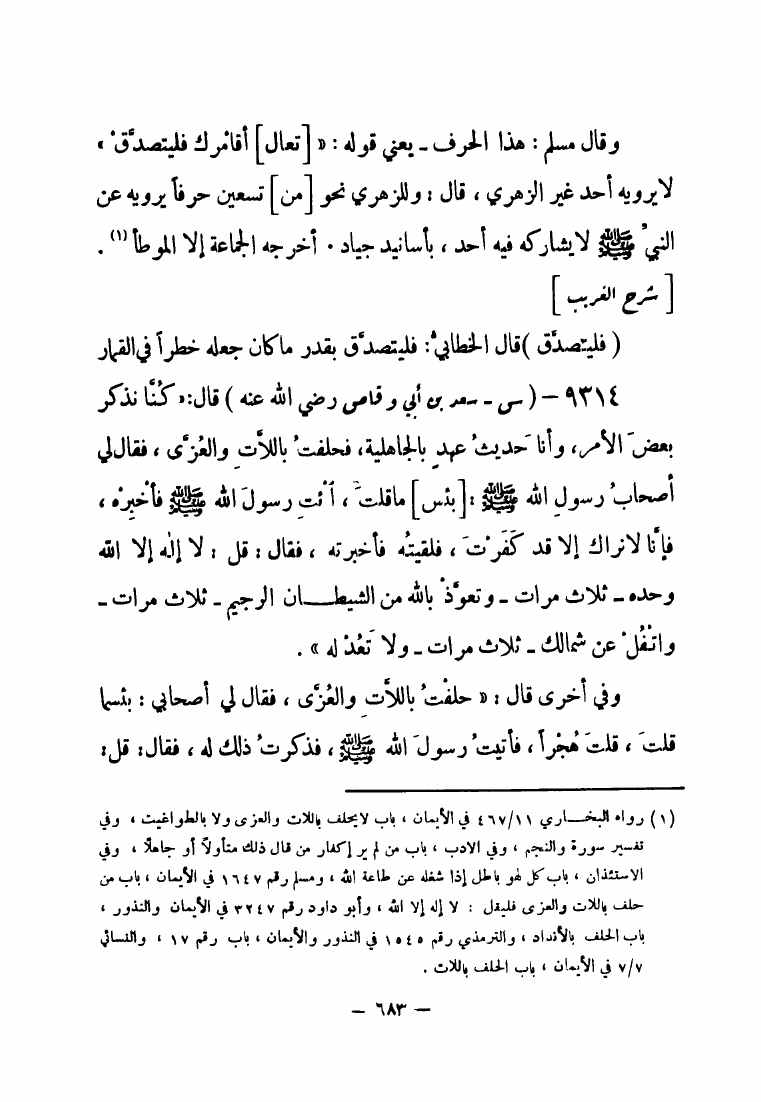 وقال مسلم : هذا الحرف ـ يعني قوله : « [تعال] أقامْرك فليتصدَّقْ »
لايرويه أحد غير الزهري ، قال : وللزهري نحو [من] تسعين حرفاً يرويه عن
النبيِّ ﷺ لايشاركه فيه أحد ، بأسانيد جياد . أخرجه الجماعة إلا الموطأ (١) .
[ شرح الغريب ]
( فليتصدَّق )قال الخطابيُّ: فليتصدَّق بقدر ماكان جعله خطراً في القمار
٩٣١٤ – ( س - سعد بن أبي وقاص رضي الله عنه ) قال:« كُنَّا نذكر
بعضَ الأمر، وأنا حَديثُ عهدٍ بالجاهلية، فحلفتُ باللاَّتِ والعُزَّى ، فقال لي
أصحابُ رسولِ الله ﷺ :[بئس] ماقلتَ ، اَئتِ رسولَ الله ﷺ فأخْبِرْه ،
فإنَّا لانراك إلا قد كَفَرْتَ ، فلقيتُه فأخبرته ، فقال : قل : لا إله إلا الله
وحده ـ ثلاث مرات ـ وتعوَّذْ بالله من الشيطــان الرجيم ـ ثلاث مرات ـ
واتْفُلْ عن شمالك ـ ثلاث مرات ـ ولا تَعُدْ له » .
وفي أخرى قال : « حلفْتُ باللاَّتِ والعُزَّى ، فقال لي أصحابي : بئسما
قلتَ ، قلتَ هُجْراً ، فأتيتُ رسولَ الله ﷺ ، فذكرتُ ذلك له ، فقال: قل:
(١) رواه البخــاري ٤٦٧/١١ في الأيمان ، باب لايحلف باللات والعزى ولا بالطواغيت ، وفي
تفسير سورة والنجم ، وفي الادب ، باب من لم ير إكفار من قال ذلك متأولاً أو جاهلاً ، وفي
الاستئذان ، باب كل لهو باطل إذا شغله عن طاعة الله ، ومسلم رقم ١٦٤٧ في الأيمان ، باب من
حلف باللات والعزى فليقل : لا إله إلا الله ، وأبو داود رقم ٣٢٤٧ في الأيمان والنذور ،
باب الحلف بالأنداد ، والترمذي رقم ١٥٤٥ في النذور والأيمان ، باب رقم ١٧ ، والنسائي
٧/٧ في الأيمان ، باب الحلف باللات .
– ٦٨٣ –